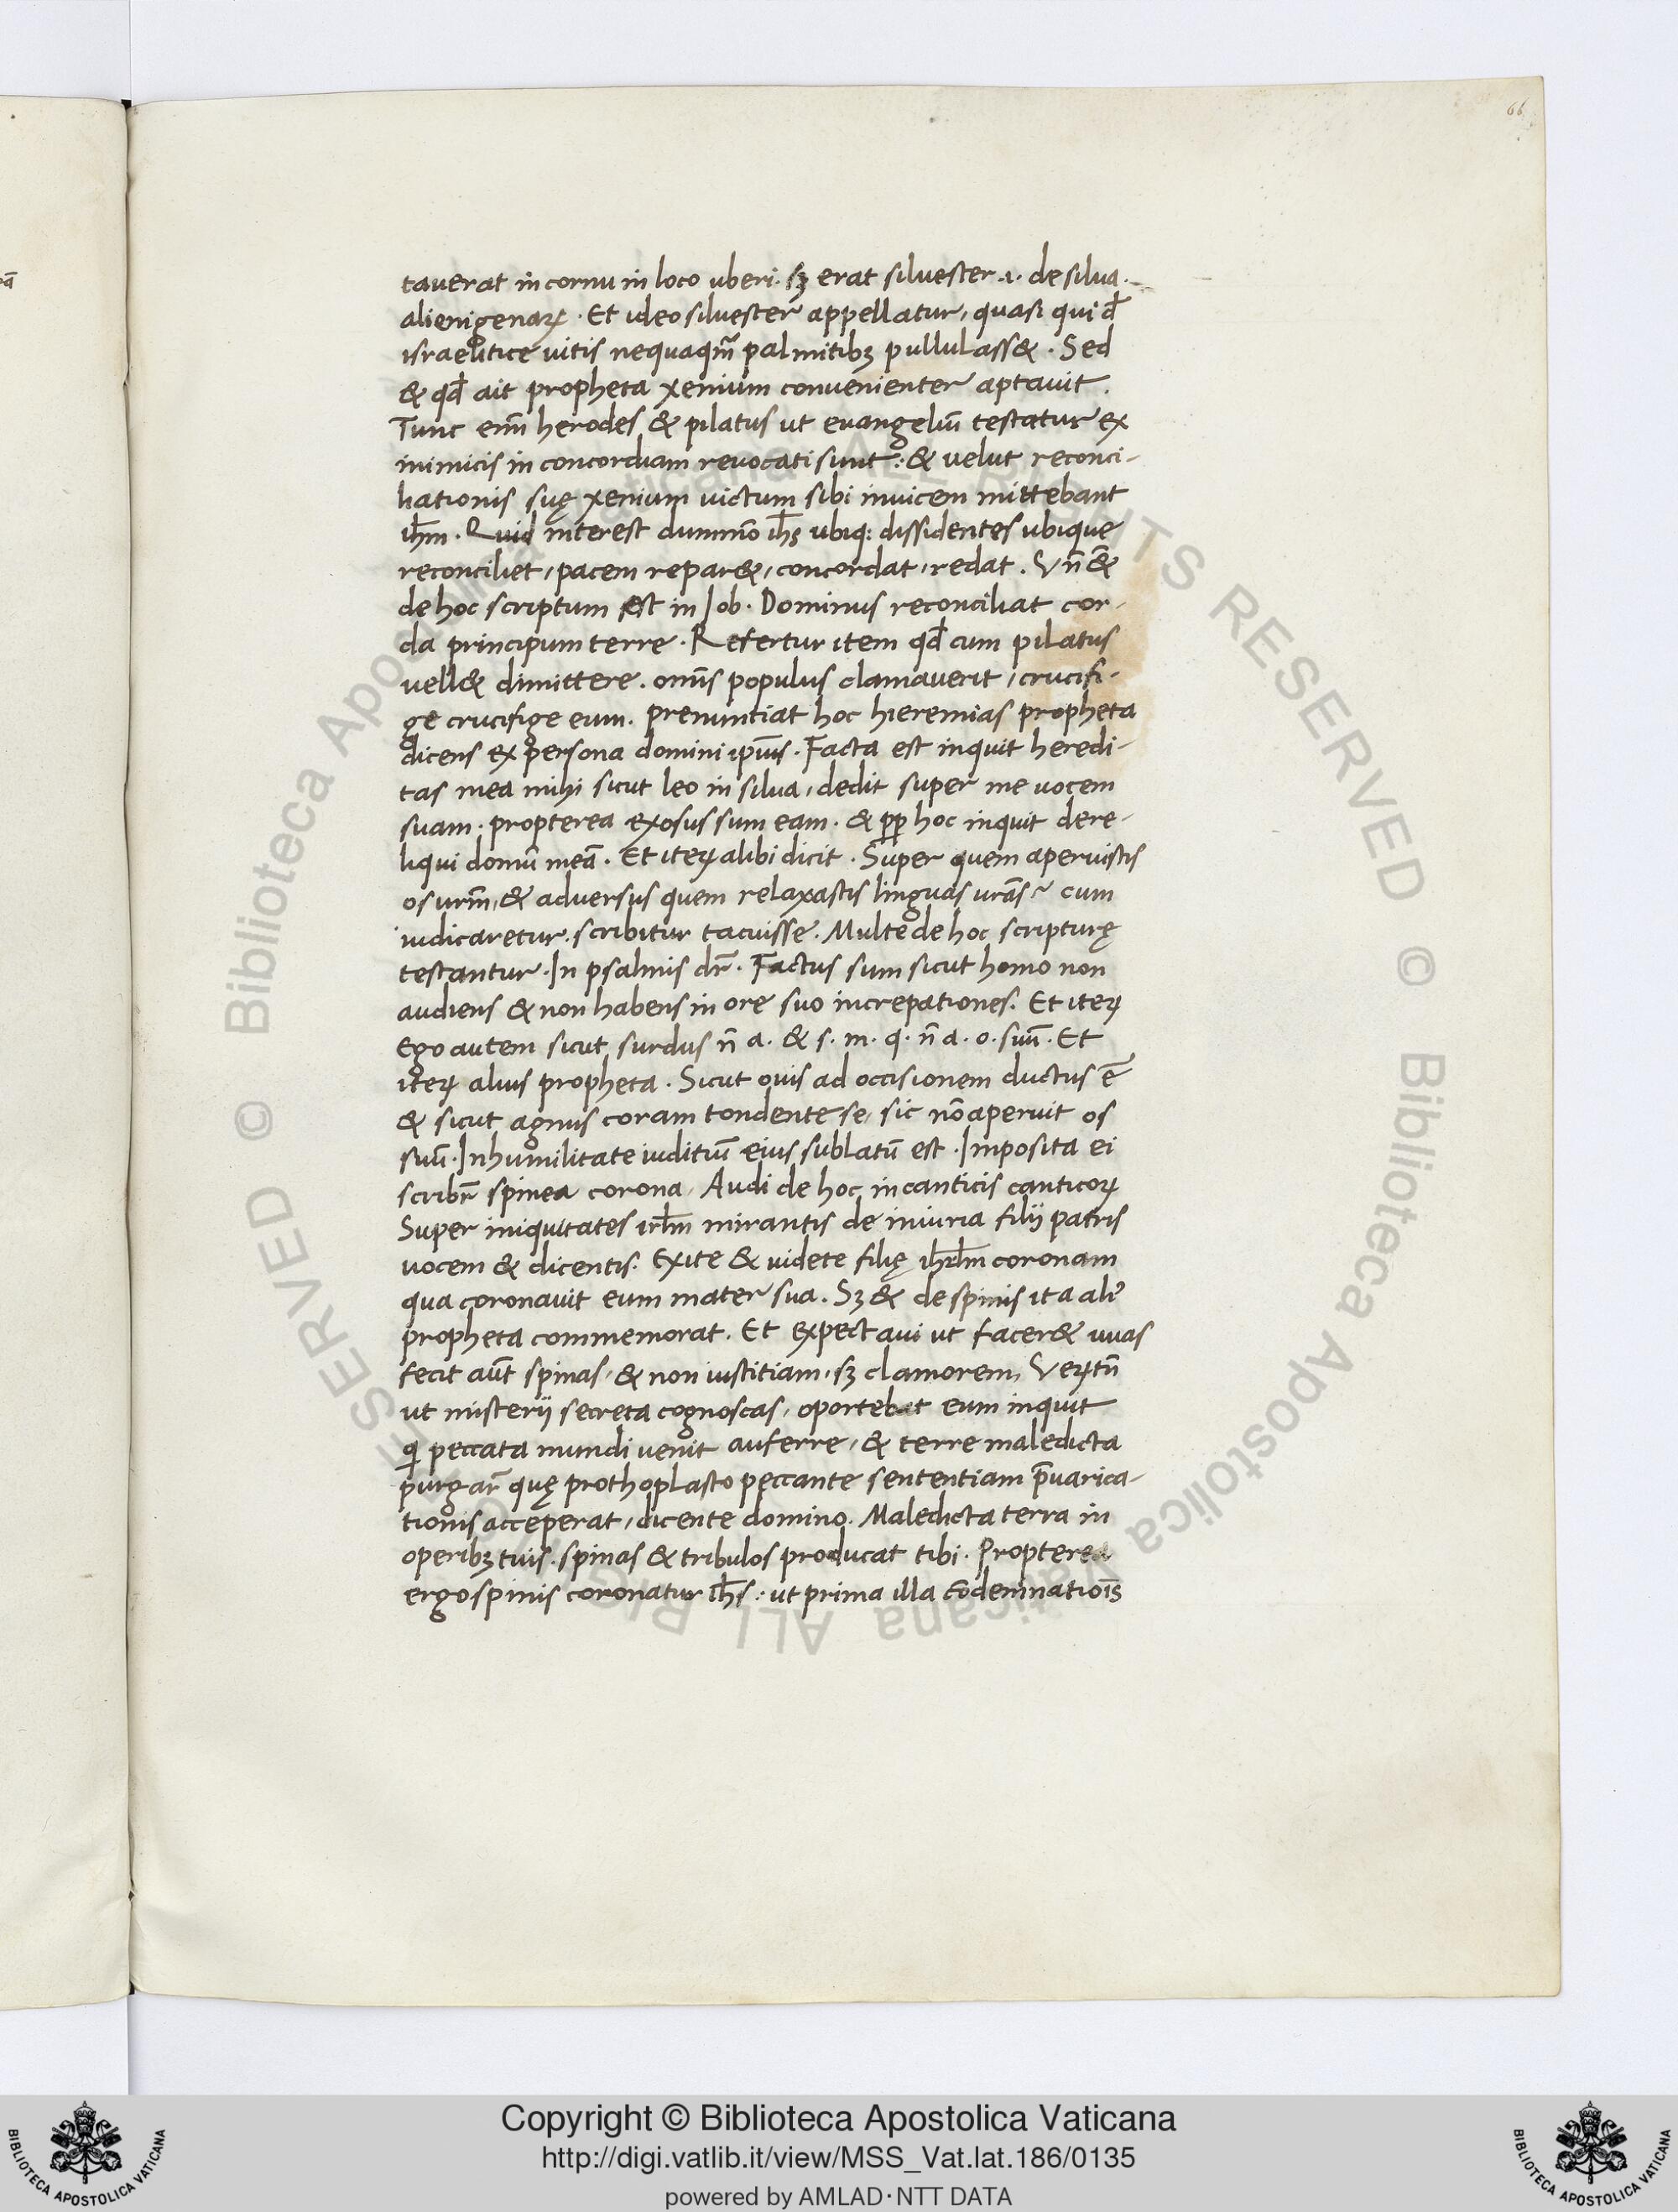 66
tauerat in cornu in loco uberi. sꝫ erat siluester .i. de silua
alienigenaꝝ. Et ideo siluester appellatur, quasi qui d̄
israelitice uitis nequaqm̄ palmitibꝫ pullulass&. Sed
& qd̄ ait propheta xenium convenienter aptauit.
Tunc enī herodes & pilatus ut euangeliū testatur ex
inimicis in concordiam reuocati sunt: & uelut reconci-
liationis suę xenium uictum sibi inuicem mittebant
ih̄m. Quid interest dummō ih̄s ubiq: dissidentes ubique
reconciliet, pacem repar&, concordat, redat. Vn̄ &
de hoc scriptum est in Job. Dominus reconciliat cor-
da principum terre. Refertur item qd̄ cum pilatus
uell& dimittere. omīs populus clamauerit, crucifi-
ge crucifige eum. prenuntiat hoc hieremias propheta
dicens ex persona domini ipīus. Facta est inquit heredi-
tas mea mihi sicut leo in silua, dedit super me uocem
suam. propterea exosus sum eam. & ꝓp hoc inquit dere-
liqui domū meā. Et iteꝝ alibi dicit. Super quem aperuistis
os urm̄, & adversus quem relaxastis linguas urās? cum
iudicaretur. scribitur tacuisse. Multe de hoc scripturę
testantur. In psalmis dr̄. Factus sum sicut homo non
audiens & non habens in ore suo increpationes. Et iteꝝ
Ego autem sicut surdus n̄ a. & s. m. q. n̄ a. o. suū. Et
iteꝝ alius propheta. Sicut ouis ad occisionem ductus ē
& sicut agnus coram tondente se, sic nō aperuit os
suū. In humilitate iuditiū eius sublatū est. Imposita ei
scribr̄ spinea corona. Audi de hoc in canticis canticoꝝ
Super iniquitates irl̄m mirantis de iniuria filii patris
uocem & dicentis. Exite & uidete filię ih̄rl̄m coronam
qua coronauit eum mater sua. Sꝫ & de spinis ita ali'
propheta commemorat. Et expectaui ut facer& uuas
fecit aūt spinas, & non iustitiam, sꝫ clamorem, Veꝝtn̄
ut misterii secreta cognoscas, oportebat eum inquit
q peccata mundi uenit auferre, & terre maledicta
purgar̄ quę prothoplasto peccante sententiam p̄uarica-
tionis acceperat, dicente domino. Maledicta terra in
operibꝫ tuis. spinas & tribulos producat tibi. Propterea
ergo spinis coronatur ih̄s: ut prima illa cōdemnatiōis
Biblioteca Apostolica Vaticana ALL RIGHTS RESERVED © Biblioteca Apostolica Vaticana ALL RIGHTS RESERVED ©
Copyright © Biblioteca Apostolica Vaticana
http://digi.vatlib.it/view/MSS_Vat.lat.186/0135
powered by AMLAD·NTT DATA
BIBLIOTECA APOSTOLICA VATICANA
BIBLIOTECA APOSTOLICA VATICANA